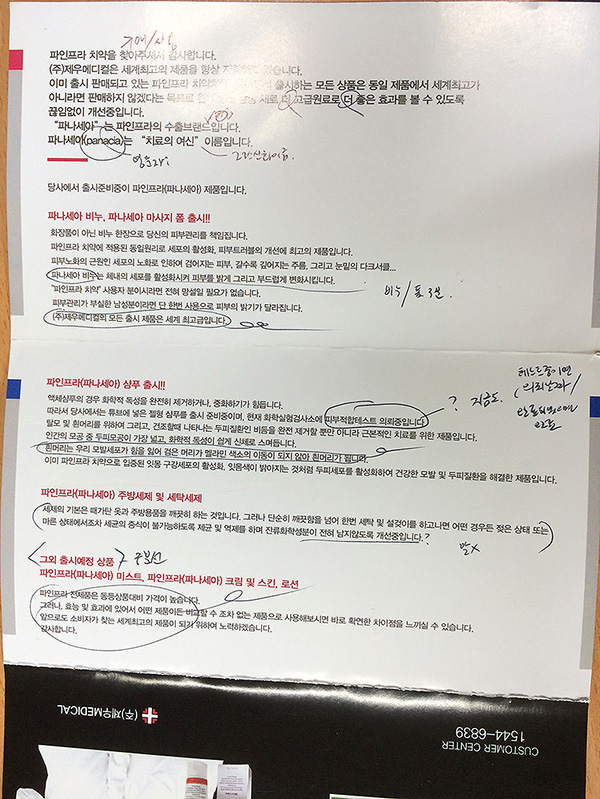 구매/사용
파인프라 치약을 찾아주셔서 감사합니다.
(주)제우메디컬은 세계최고의 제품을 항상
이미 출시 판매되고 있는 파인프라 치약 출시하는 모든 상품은 동일 제품에서 세계최고가
아니라면 판매하지 않겠다는 목표로 더 고급원료로 더 좋은 효과를 볼 수 있도록
끊임없이 개선중입니다.
"파나세아"는 파인프라의 수출브랜드입니다.
파나세아(panacia)는 "치료의 여신" 이름입니다.
영문자? 그리스신화이름
당사에서 출시준비중이 파인프라(파나세아) 제품입니다.
파나세아 비누, 파나세아 마사지 폼 출시!!
화장품이 아닌 비누 한장으로 당신의 피부관리를 책임집니다.
파인프라 치약에 적용된 동일원리로 세포의 활성화, 피부트러블의 개선에 최고의 제품입니다.
피부노화의 근원인 세포의 노화로 인하여 검어지는 피부, 갈수록 깊어지는 주름, 그리고 눈밑의 다크서클...
파나세아 비누는 체내의 세포를 활성화시켜 피부를 밝게 그리고 부드럽게 변화시킵니다.
"파인프라 치약" 사용자 분이시라면 전혀 망설일 필요가 없습니다.
비누/폼
피부관리가 부실한 남성분이라면 단 한번 사용으로 피부의 밝기가 달라집니다.
(주)제우메디컬의 모든 출시 제품은 세계 최고급입니다.
테스트중이면
의뢰날짜/
완료되었으면
완료
파인프라(파나세아) 샴푸 출시!!
? 지금도.
액체샴푸의 경우 화학적 독성을 완전히 제거하거나, 중화하기가 힘듭니다.
따라서 당사에서는 튜브에 넣은 젤형 샴푸를 출시 준비중이며, 현재 화학실험검사소에 피부적합테스트 의뢰중입니다.
탈모 및 흰머리를 위하여 그리고, 건조할때 나타나는 두피질환인 비듬을 완전 제거할 뿐만 아니라 근본적인 치료를 위한 제품입니다.
인간의 모공 중 두피모공이 가장 넓고, 화학적 독성이 쉽게 신체로 스며듭니다.
흰머리는 우리 모발세포가 힘을 잃어 검은 머리가 멜라민 색소의 이동이 되지 않아 흰머리가 됩니다.
이미 파인프라 치약으로 입증된 잇몸 구강세포의 활성화, 잇몸색이 밝아지는 것처럼 두피세포를 활성화하여 건강한 모발 및 두피질환을 해결한 제품입니다.
파인프라(파나세아) 주방세제 및 세탁세제
세제의 기본은 때가탄 옷과 주방용품을 깨끗히 하는 것입니다. 그러나 단순히 깨끗함을 넘어 한번 세탁 및 설겆이를 하고나면 어떤 경우든 젖은 상태 또는
마른 상태에서조차 세균의 증식이 불가능하도록 제균 및 억제를 하며 잔류화학성분이 전혀 남지않도록 개선중입니다.?
말x
<그외 출시예정 상품>
파인프라(파나세아) 미스트, 파인프라(파나세아) 크림 및 스킨, 로션
파인프라 전제품은 동등상품대비 가격이 높습니다.
그러나, 효능 및 효과에 있어서 어떤 제품이든 비교할 수 조차 없는 제품으로 사용해보시면 바로 확연한 차이점을 느끼실 수 있습니다.
앞으로도 소비자가 찾는 세계최고의 제품이 되기 위하여 노력하겠습니다.
감사합니다.
(주)제우MEDICAL
CUSTOMER CENTER
1544-6839